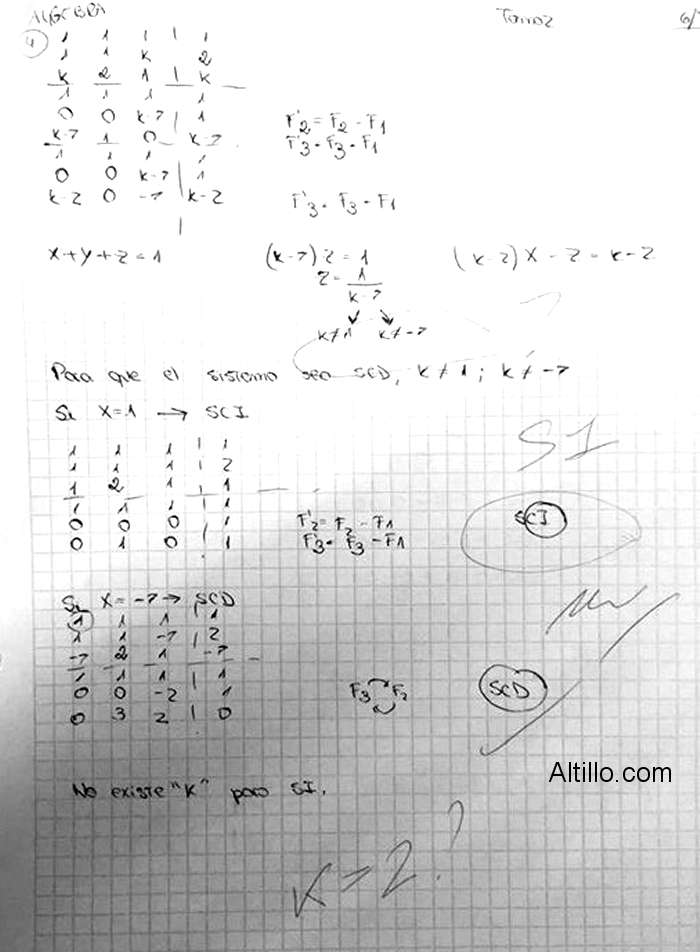 ALGEBRA Tema 2 6/
4) 1 1 1 | 1
1 1 k 2
k 2 1 | k
1 1 1 1
0 0 k-1 | 1
k-1 1 0 k-1
1 1 1 1
0 0 k-1 | 1
k-2 0 -1 k-2
F'2 = F2 - F1
F'3 = F3 - F1
F'3 = F3 - F1
x+y+z=1 (k-1)z=1 (k-2)x-z=k-2
z=1/k-1
k≠1 k≠-1
Para que el sistema sea SCD, k≠1; k≠-1
Si X=1 → SCI
1 1 1 | 1
1 1 1 | 2
1 2 1 | 1
1 1 1 | 1
0 0 0 | 1
0 1 0 | 1
F'2 = F2 - F1
F'3 = F3 - F1
SI
SCI
Si X=-1 → SCD
1 1 1 1
1 1 -1 | 2
-1 2 1 -1
1 1 1 | 1
0 0 -2 1
0 3 2 | 0
F3 F2
SCD
Altillo.com
No existe "K" para SI.
K=2?